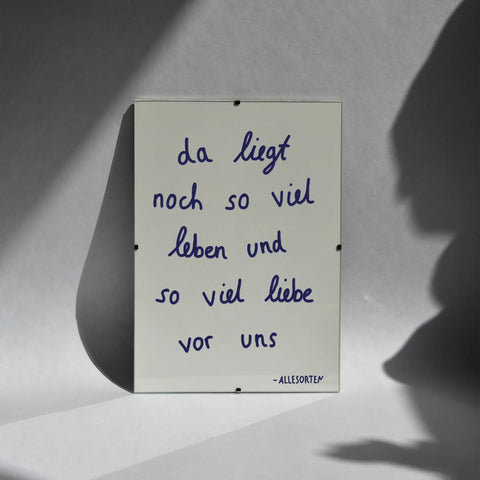 da liegt
noch so viel
leben und
so viel liebe
vor uns
-ALLESORTEN